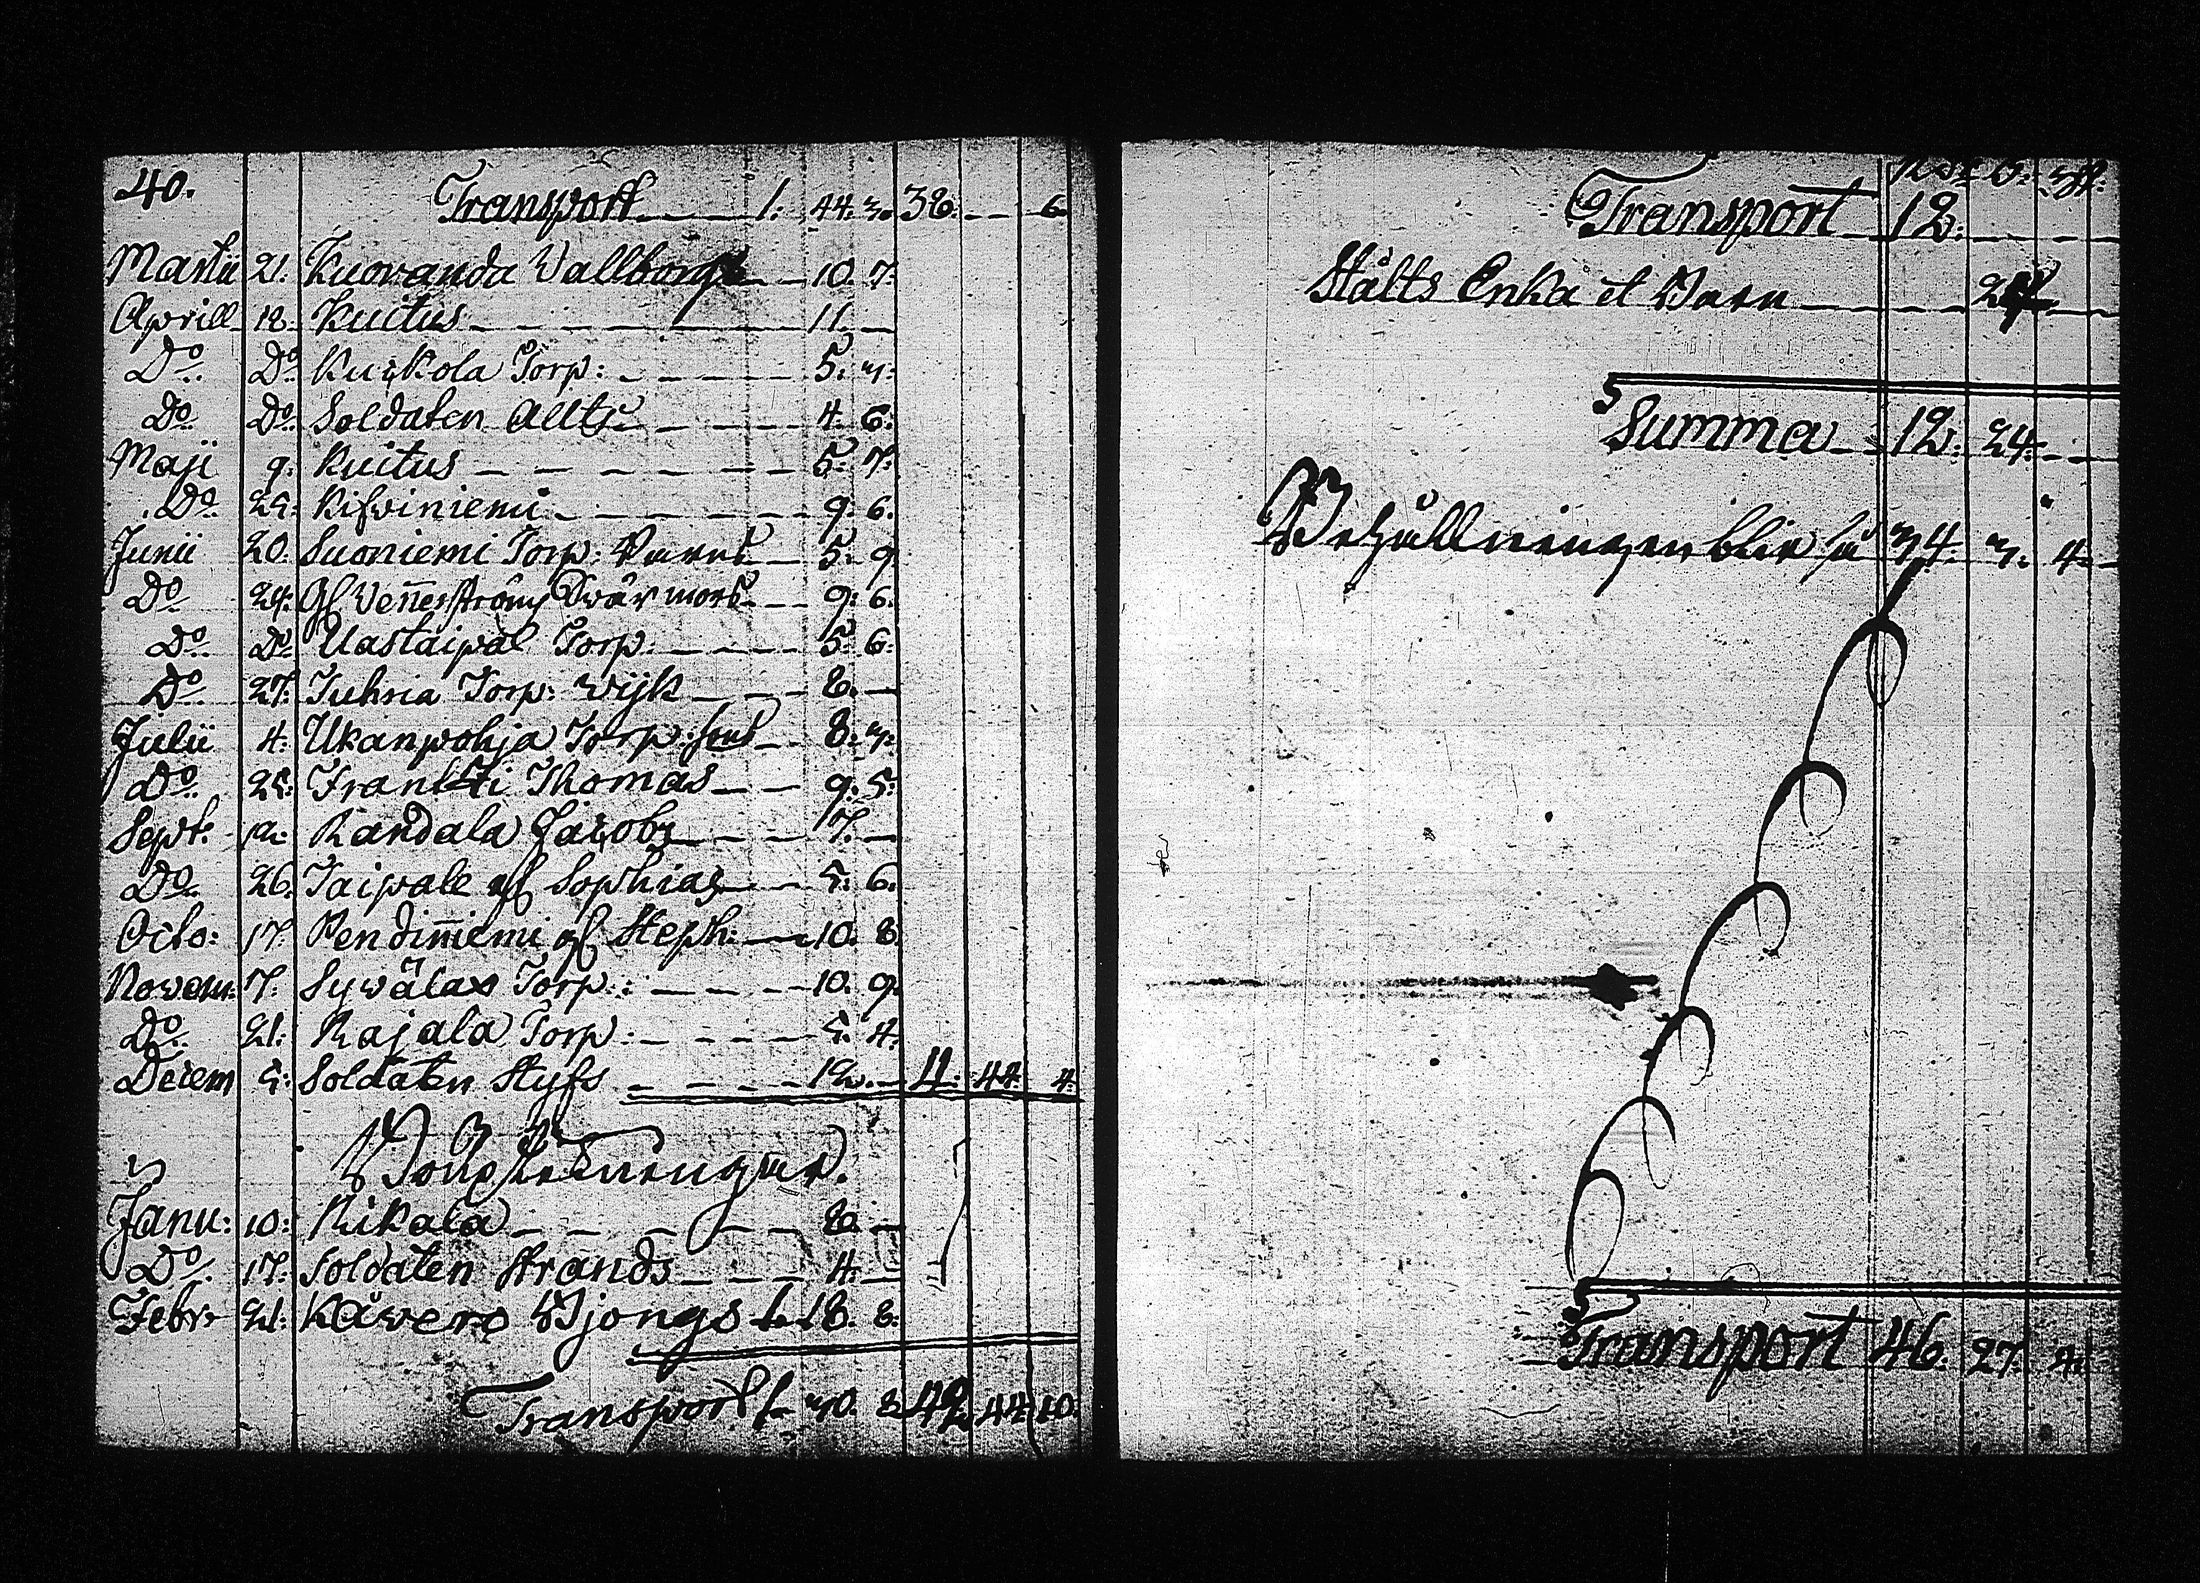 40.
Transport 1. 44. 3. 36. 6.
Martii 21. Kuovanda Wallborgs 10. 7.
Aprill 18. Kuitus 11.
Do. Do. Kuckola Torp: 5. 3.
Do. Do. Soldaten Allts 4. 6.
Maji 9. Kuitus 5. 7.
Do. 25. Kifviniemi 9. 6.
Junii 20. Suoniemi Torp: Barns 5. 9.
Do. 24. Gl Wennerströms Swärmors 9. 6.
Do. Do. Uastaipal Torp: 5. 6.
Do. 27. Juhria Torp: wijk 8.
Julii 4. Ukanpohja Torp: sons 8. 3.
Do. 25. Frantzi Thomas 9. 5.
Sept: 12. Randala Jacobs 7.
Do. 26. Taipale gl Sophias 5. 6.
Octo: 17. Pendinniemi gl Steph: 10. 8.
Novem: 7. Sywälax Torp: 10. 9.
Do. 21. Rajala Torp: 5. 4.
Decem 5. Soldaten Styfs 12. 11. 44. 4.
Janu: 10. Rikala
Do. 17. Soldaten Strands 4.
Febr: 21. Kåvero Bjongs 1. 18. 8.
Transport 1. 30. 8. 48. 44. 10.
Transport 12.
Stålts Enka et Barn 24
Summa 12. 24.
Behållningen blir så 34. 3. 4.
Transport 46. 27. 4.